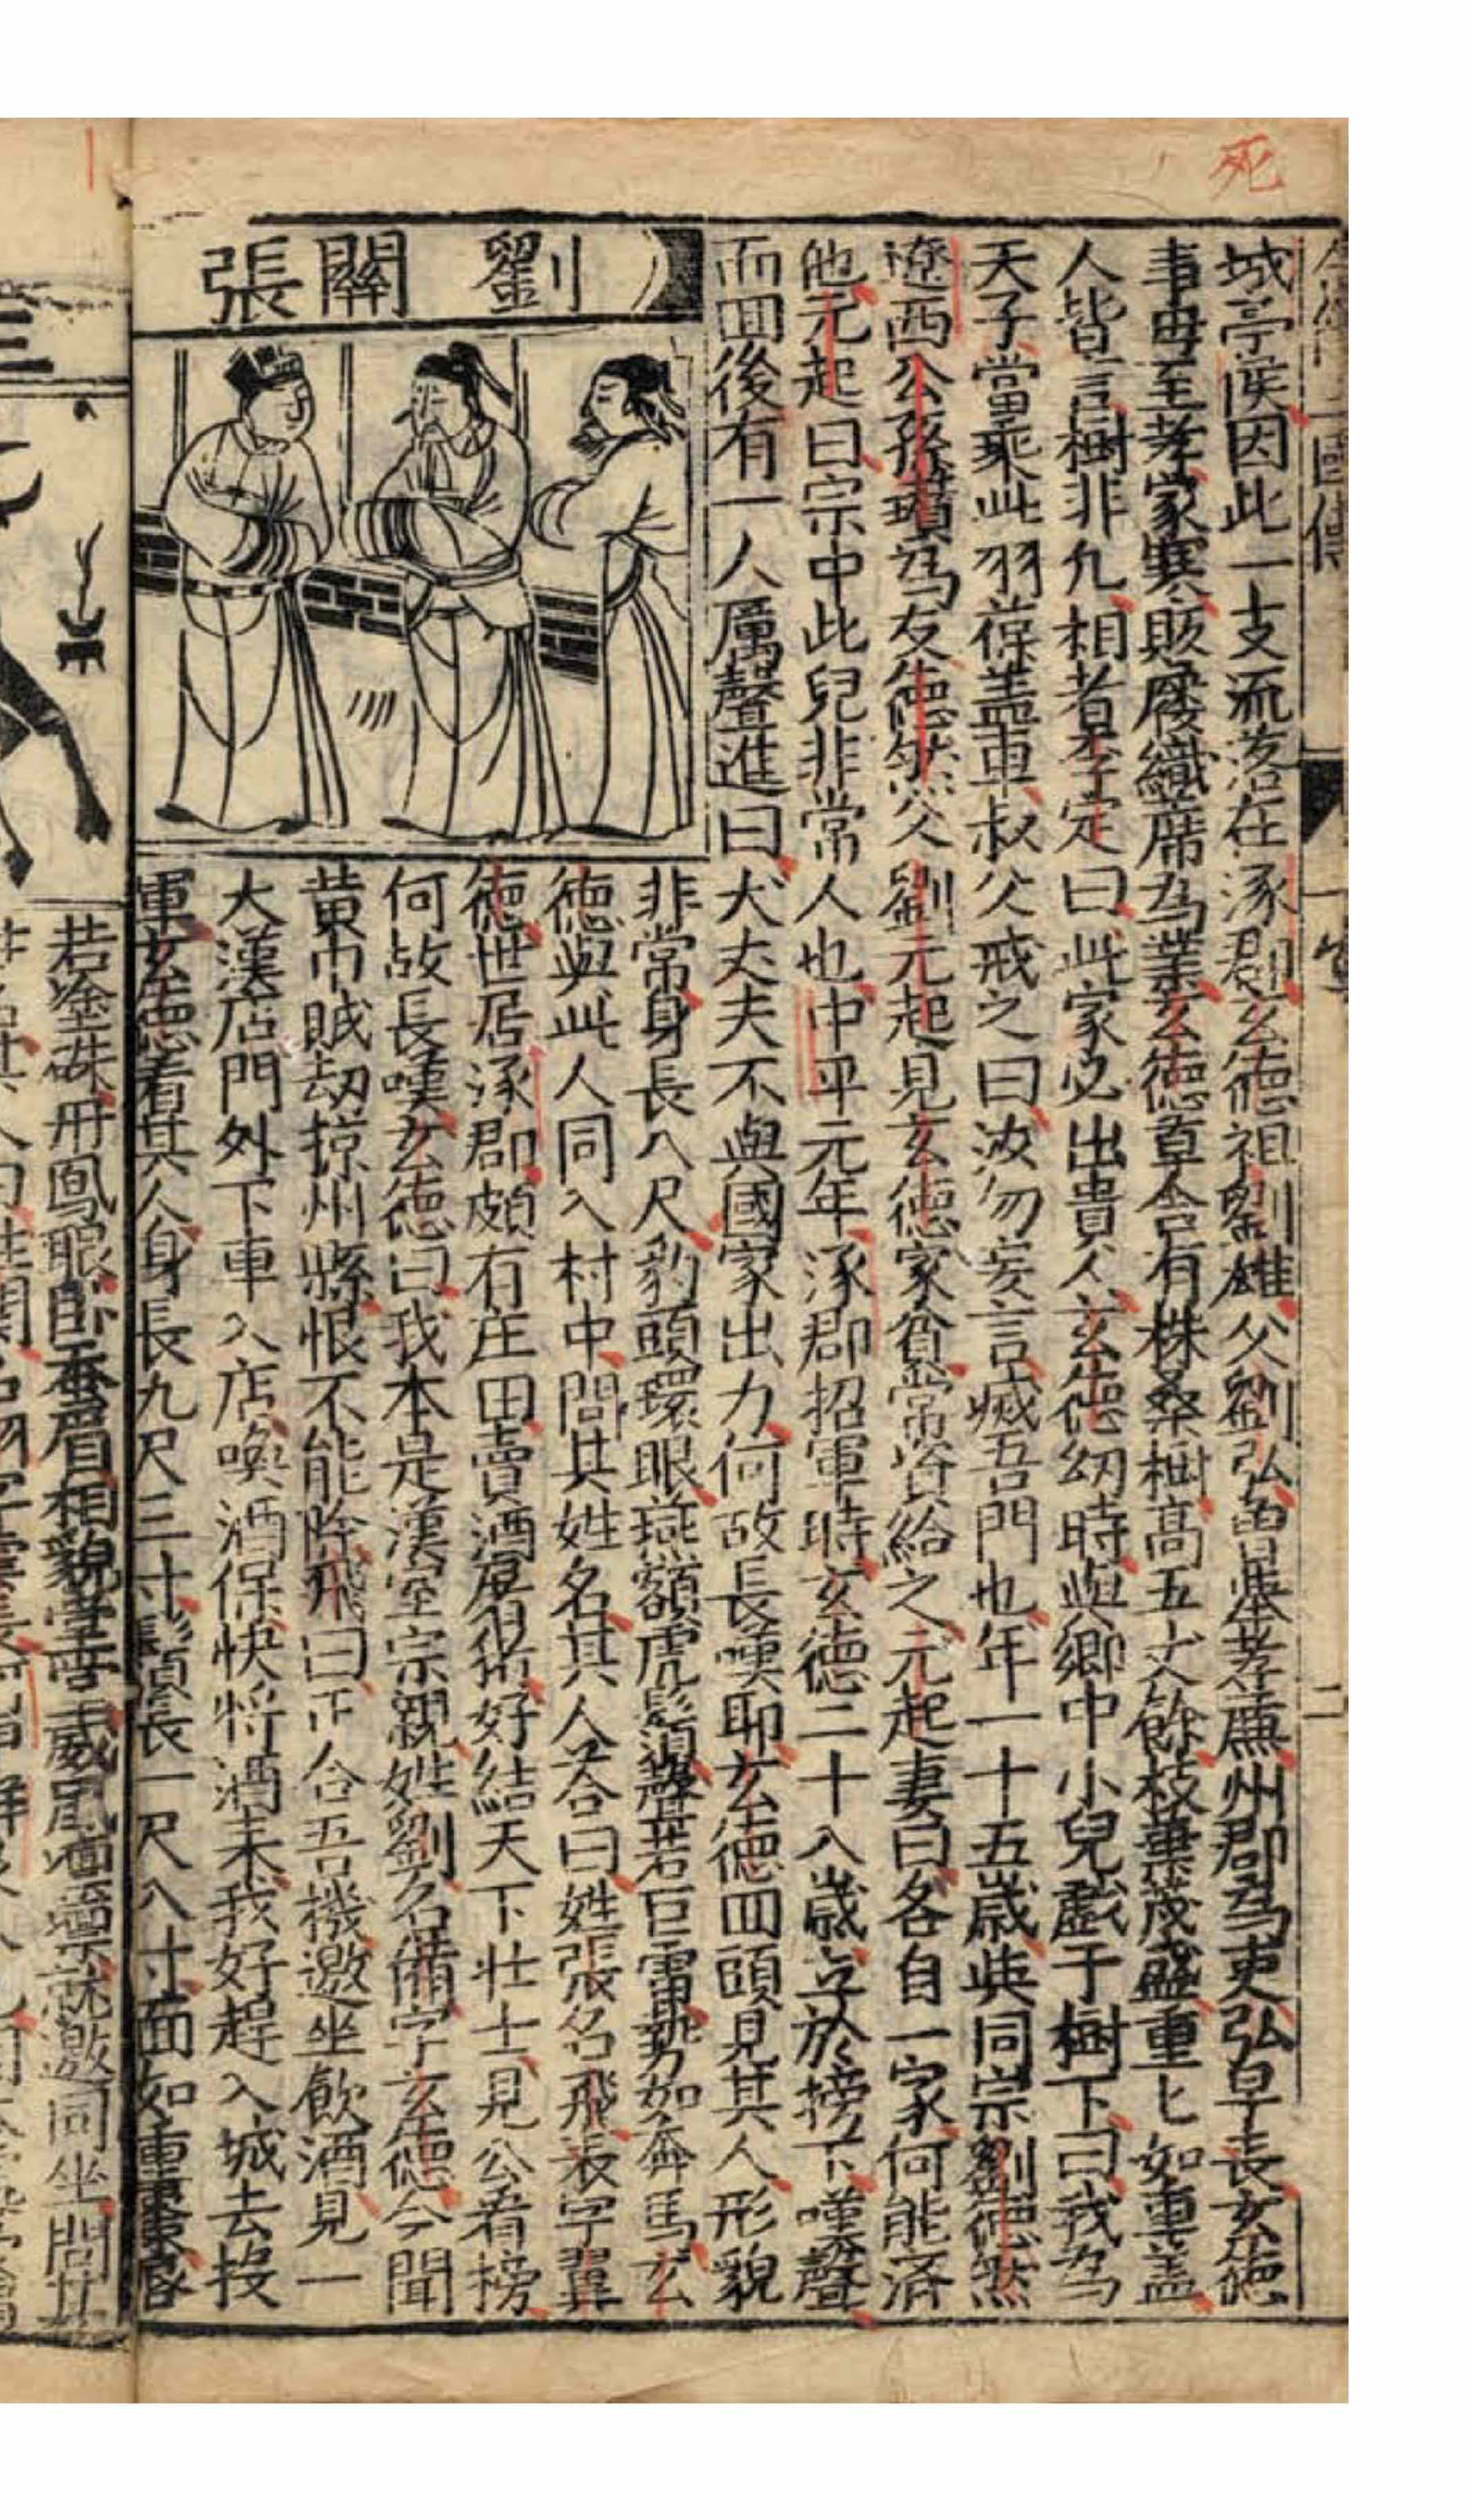 死
三國傳
一卷
二
城亭侯因此一支流落在涿郡玄德祖劉雄父劉弘曾舉孝廉州郡為吏弘早喪玄德
事母至孝家寒販屨織蓆為業玄德草舍有株桑樹高五丈餘枝葉茂盛重匕如車盖
人皆言樹非凢相者李定曰此家必出貴人玄德幼時與鄉中小兒戲于樹下曰我為
天子當乘此羽葆盖車叔父戒之曰汝勿妄言滅吾門也年一十五歲與同宗劉德然
遼西公孫瓚為友德然父劉元起見玄德家貧常資給之元起妻曰各自一家何能済
他元起曰宗中此兒非常人也中平元年涿郡招軍時玄德二十八歲立於榜下嘆聲
而囬後有一人厲聲進曰大丈夫不與國家出力何故長嘆耶玄德囬頭見其人形貌
劉關張
非常身長八尺豹頭環眼燕額虎鬚聲若巨雷勢如奔馬玄
德與此人同入村中問其姓名其人荅曰姓張名飛表字翼
德世居涿郡頗有庄田賣酒屠猪好結天下壮士見公看榜
何故長嘆玄德曰我本是漢室宗親姓劉名備字玄德今聞
黄巾賊劫掠州縣恨不能除飛曰正合吾機邀坐飲酒見一
大漢店門外下車入店喚酒保快将酒来我好趕入城去投
軍玄德看其人身長九尺三寸鬚長一尺八寸面如重棗唇
若塗硃丹鳳眼卧蚕眉相貌堂堂威風凛凛就邀同坐問其
三